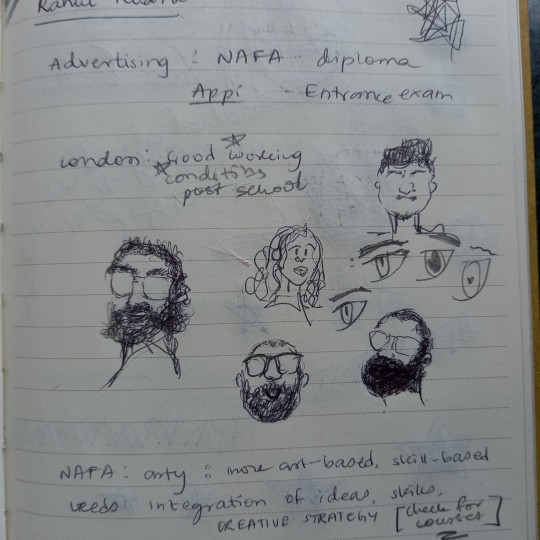 Advertising : NAFA diploma
App: - Entrance exam
London: Good working
conditions
post school
NAFA: arty : more art-based, skill-based
needs integration of ideas, skills,
CREATIVE STRATEGY [check for
courses]